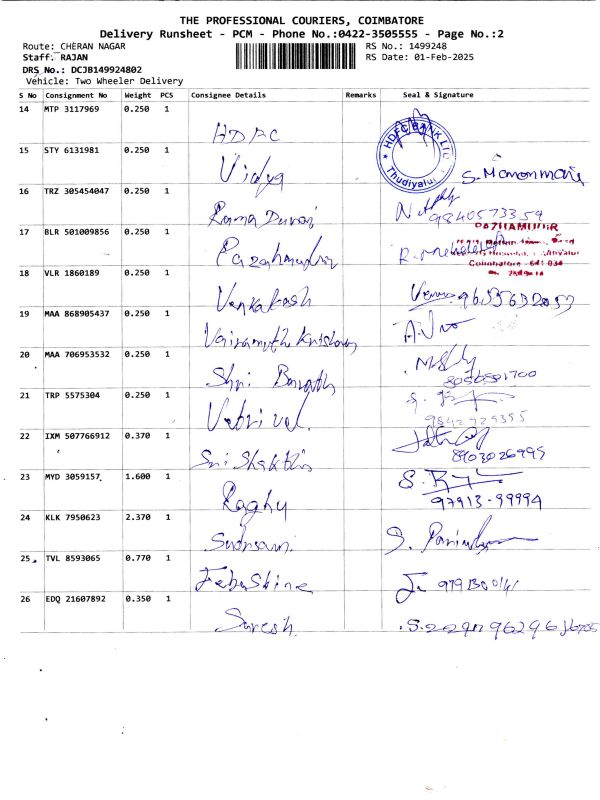 THE PROFESSIONAL COURIERS, COIMBATORE
Delivery Runsheet - PCM - Phone No.:0422-3505555 - Page No.:2
Route: CHERAN NAGAR RS No.: 1499248
Staff: RAJAN RS Date: 01-Feb-2025
DRS No.: DCJB149924802
Vehicle: Two Wheeler Delivery
S No Consignment No Weight PCS Consignee Details Remarks Seal & Signature
14 MTP 3117969 0.250 1 HDFC HDFC BANK Thudiyalur
15 STY 6131981 0.250 1 Vidya S. Manonmani
16 TRZ 305454047 0.250 1 Rama Durai 9840573359
17 BLR 501009856 0.250 1
Coimbatore - 641 034
18 VLR 1860189 0.250 1 Venkatesh
19 MAA 868905437 0.250 1
20 MAA 706953532 0.250 1 Shri 8056501700
21 TRP 5575304 0.250 1 Vetrivel. 9842725355
22 IXM 507766912 0.370 1 Sri Shakthi 8903026995
23 MYD 3059157 1.600 1 Raghu 97913-99994
24 KLK 7950623 2.370 1
25 TVL 8593065 0.770 1 JebaShine
26 EDQ 21607892 0.350 1 Suresh.